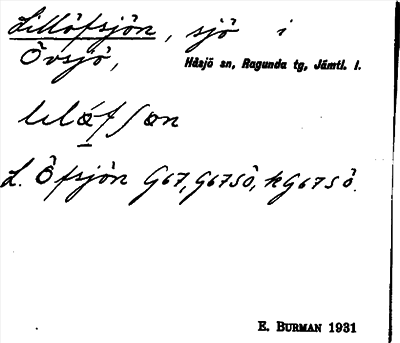 Lillöfsjön, sjö i
Övsjö,
Håsjö sn, Ragunda tg, Jämtl. l.
lilǽfʃøn
L. Öfsjön G67, G67SÖ, kG67SÖ.
E. BURMAN 1931